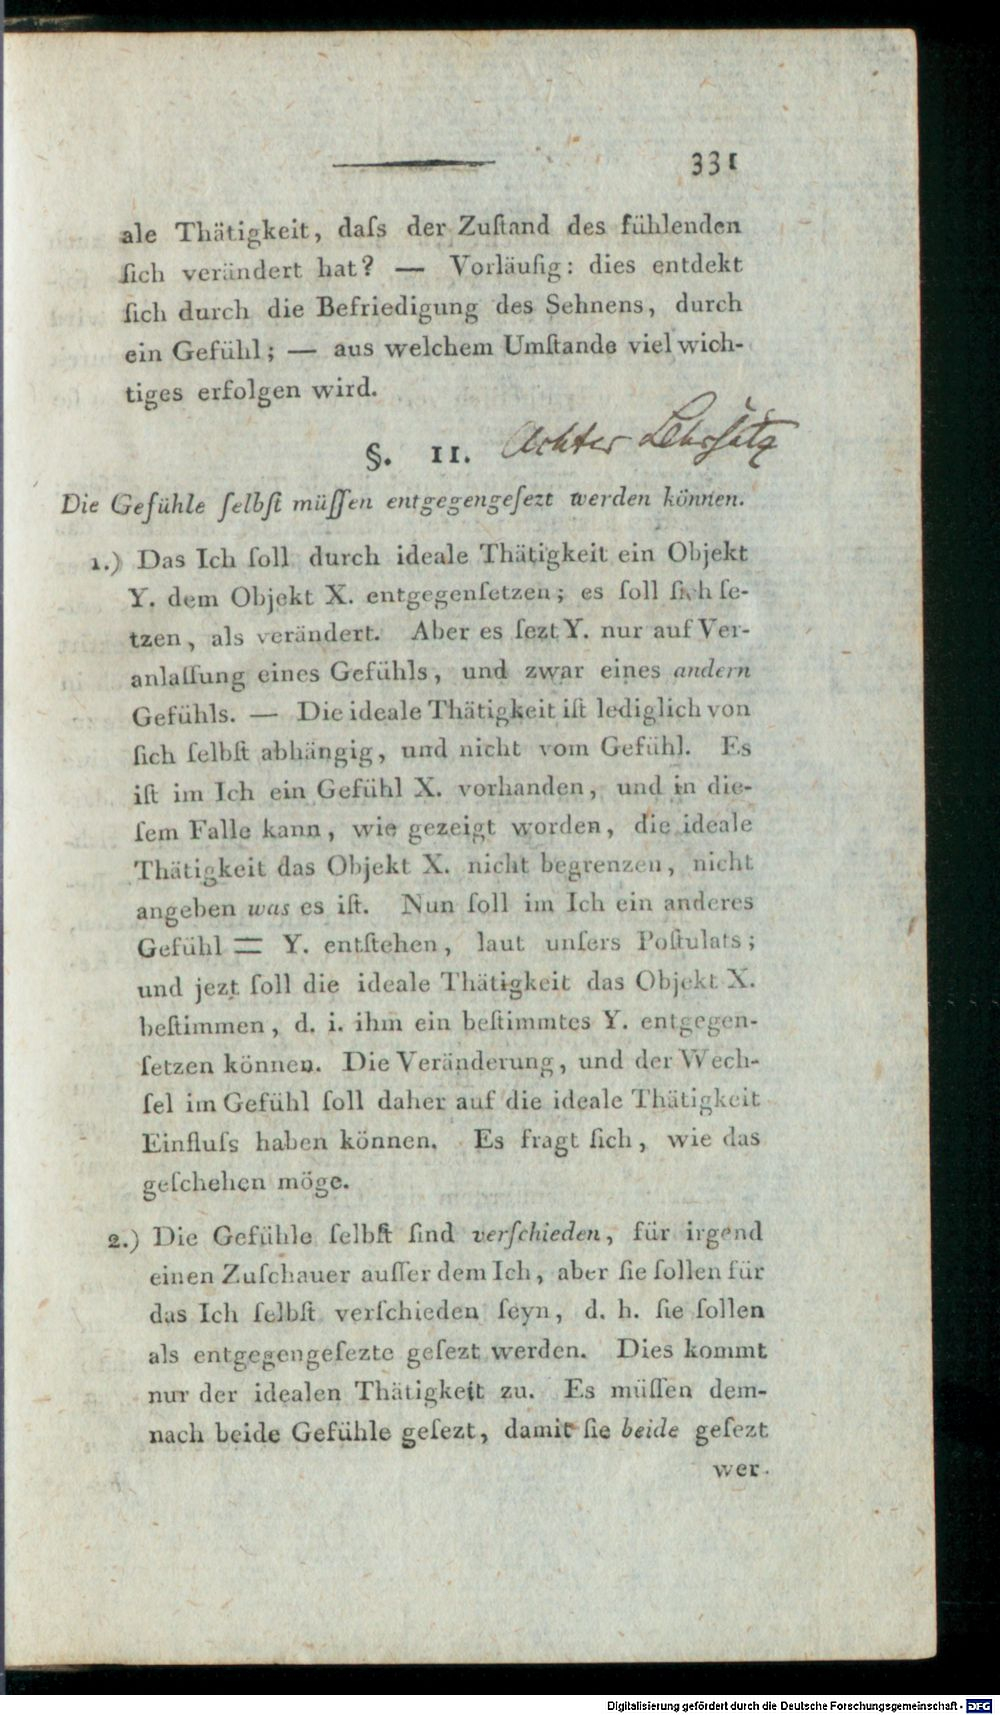 331
ale Thätigkeit, daſs der Zuſtand des fühlenden
ſich verändert hat? — Vorläufig: dies entdekt
ſich durch die Befriedigung des Sehnens, durch
ein Gefühl; — aus welchem Umſtande viel wich-
tiges erfolgen wird.
§. 11. Achter Lehrsatz
Die Gefühle ſelbſt müſſen entgegengeſezt werden können.
1.) Das Ich ſoll durch ideale Thätigkeit ein Objekt
Y. dem Objekt X. entgegenſetzen; es ſoll ſich ſe-
tzen, als verändert. Aber es ſezt Y. nur auf Ver-
anlaſſung eines Gefühls, und zwar eines andern
Gefühls. — Die ideale Thätigkeit iſt lediglich von
ſich ſelbſt abhängig, und nicht vom Gefühl. Es
iſt im Ich ein Gefühl X. vorhanden, und in die-
ſem Falle kann, wie gezeigt worden, die ideale
Thätigkeit das Objekt X. nicht begrenzen, nicht
angeben was es iſt. Nun ſoll im Ich ein anderes
Gefühl = Y. entſtehen, laut unſers Poſtulats;
und jezt ſoll die ideale Thätigkeit das Objekt X.
beſtimmen, d. i. ihm ein beſtimmtes Y. entgegen-
ſetzen können. Die Veränderung, und der Wech-
ſel im Gefühl ſoll daher auf die ideale Thätigkeit
Einfluſs haben können. Es fragt ſich, wie das
geſchehen möge.
2.) Die Gefühle ſelbſt ſind verſchieden, für irgend
einen Zuſchauer auſſer dem Ich, aber ſie ſollen für
das Ich ſelbſt verſchieden ſeyn, d. h. ſie ſollen
als entgegengeſezte geſezt werden. Dies kommt
nur der idealen Thätigkeit zu. Es müſſen dem-
nach beide Gefühle geſezt, damit ſie beide geſezt
wer-
Digitalisierung gefördert durch die Deutsche Forschungsgemeinschaft - DFG